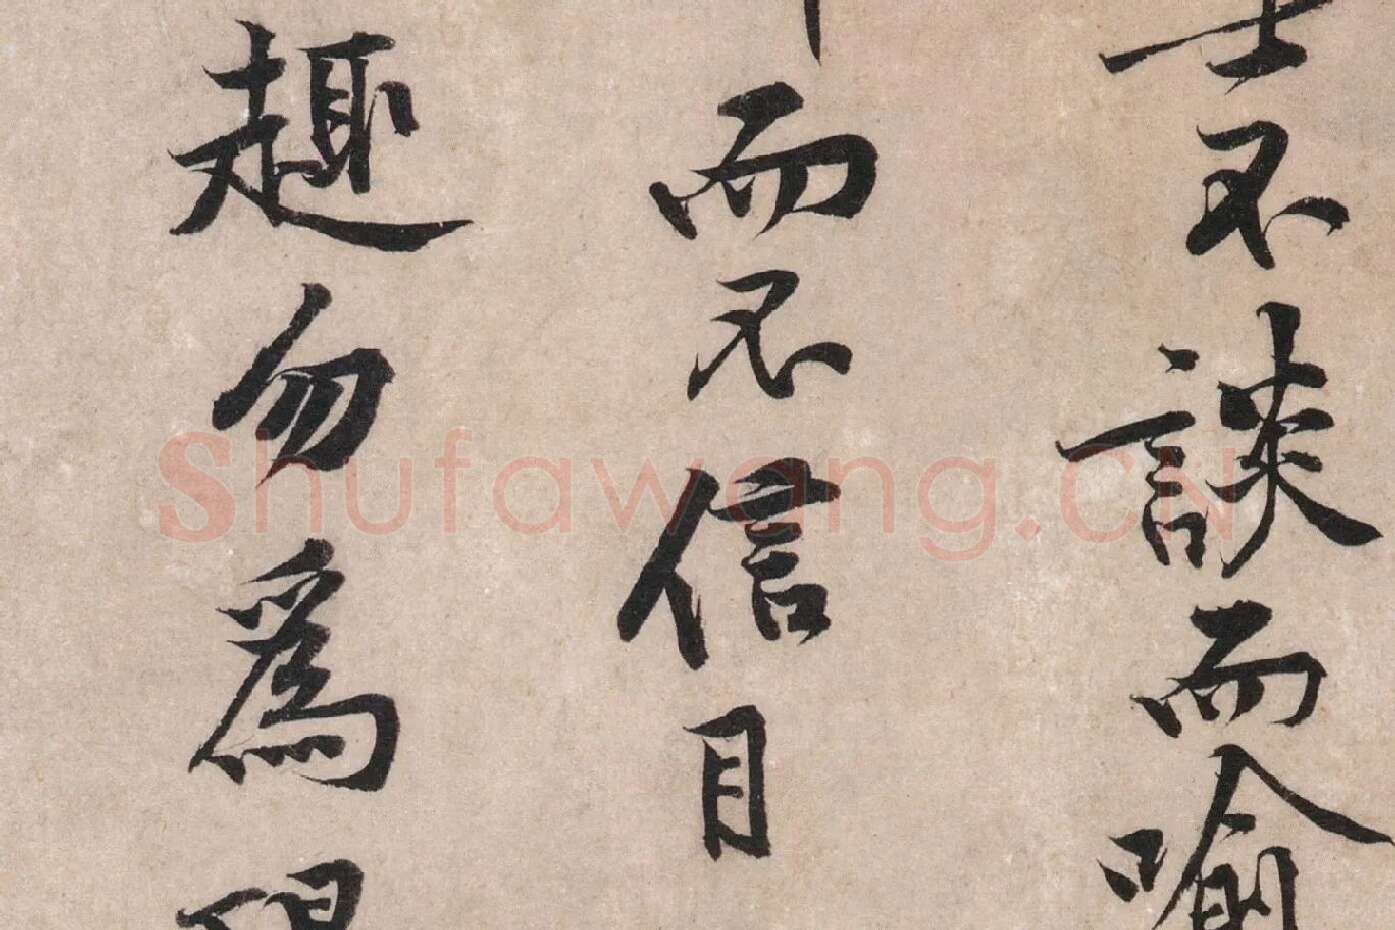 士不談而喻
而不信目
趣勿為
Shufawang.CN